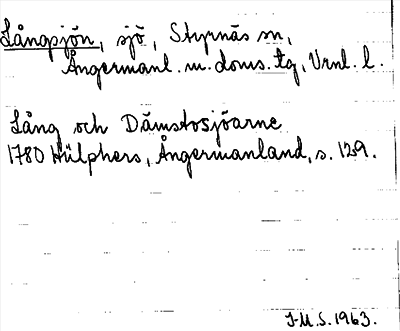 Långsjön, sjö, Styrnäs sn,
Ångermanl. m. doms. tg, Vrnl. l.
Lång och Dämstosjöarne
1780 Hülphers, Ångermanland, s. 129.
J-M.S. 1963.